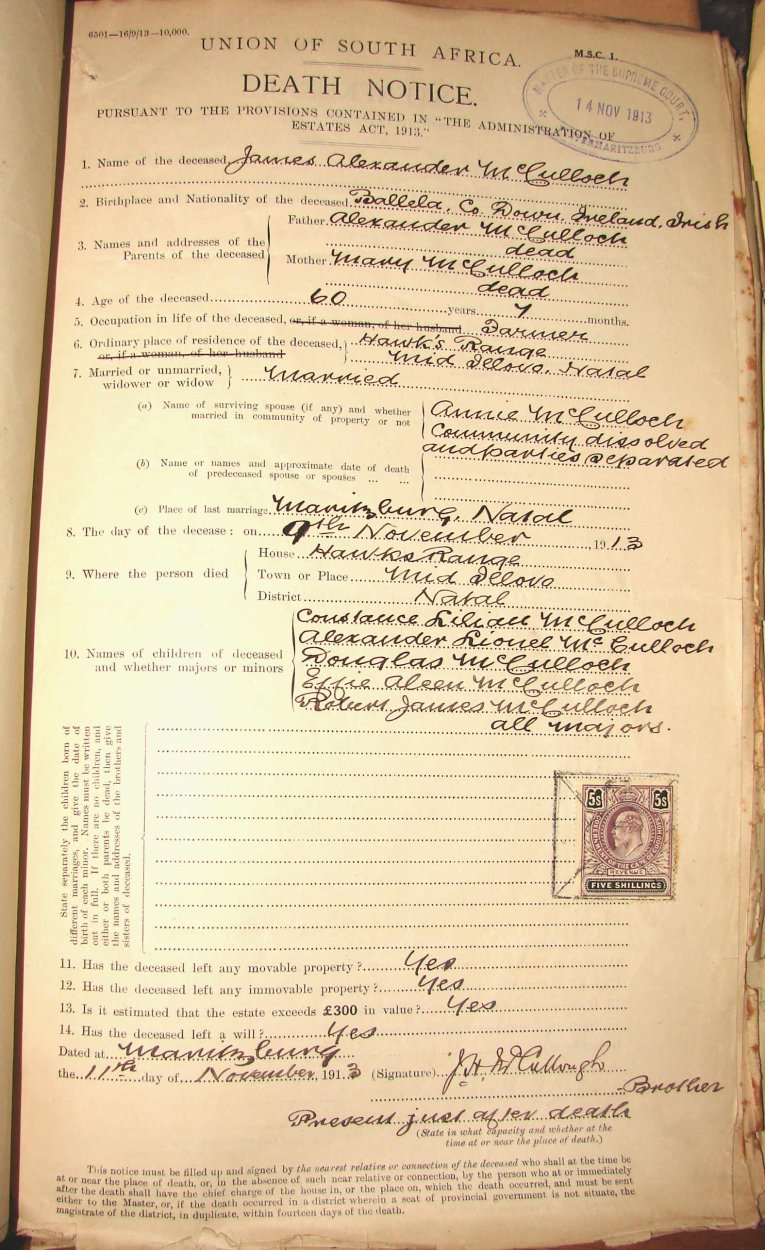 6501—16/9/13—10,000.
UNION OF SOUTH AFRICA.
M.S.C. 1.
DEATH NOTICE.
MASTER OF THE SUPREME COURT,
14 NOV 1913
PIETERMARITZBURG
PURSUANT TO THE PROVISIONS CONTAINED IN "THE ADMINISTRATION OF
ESTATES ACT, 1913."
1. Name of the deceased James Alexander McCulloch
2. Birthplace and Nationality of the deceased Ballela, Co. Down, Ireland, Irish
3. Names and addresses of the Parents of the deceased
Father Alexander McCulloch
dead
Mother Mary McCulloch
dead
4. Age of the deceased 60 years 7 months.
5. Occupation in life of the deceased, or, if a woman, of her husband Farmer
6. Ordinary place of residence of the deceased, Hawk's Range
or, if a woman, of her husband Mid Illovo, Natal
7. Married or unmarried, widower or widow Married
(a) Name of surviving spouse (if any) and whether married in community of property or not
Annie McCulloch
Community dissolved
and parties separated
(b) Name or names and approximate date of death
of predeceased spouse or spouses ... ...
(c) Place of last marriage Maritzburg, Natal
8. The day of the decease: on 9th November, 1913
9. Where the person died
House Hawks Range
Town or Place Mid Illovo
District Natal
10. Names of children of deceased and whether majors or minors
Constance Lilian McCulloch
Alexander Lionel McCulloch
Douglas McCulloch
Effie Aleen McCulloch
Robert James McCulloch
all majors.
State separately the children born of
different marriages, and give the date of
birth of each minor. Names must be written
out in full. If there are no children, and
either or both parents be dead, then give
the names and addresses of the brothers and
sisters of deceased.
5s 5s
REVENUE
FIVE SHILLINGS
11. Has the deceased left any movable property? Yes
12. Has the deceased left any immovable property? Yes
13. Is it estimated that the estate exceeds £300 in value? Yes
14. Has the deceased left a will? Yes
Dated at Maritzburg
the 11th day of November, 1913 (Signature) J. H. McCullough
Brother
Present just after death
(State in what capacity and whether at the
time at or near the place of death.)
This notice must be filled up and signed by the nearest relative or connection of the deceased who shall at the time be
at or near the place of death, or, in the absence of such near relative or connection, by the person who at or immediately
after the death shall have the chief charge of the house in, or the place on, which the death occurred, and must be sent
either to the Master, or, if the death occurred in a district wherein a seat of provincial government is not situate, the
magistrate of the district, in duplicate, within fourteen days of the death.